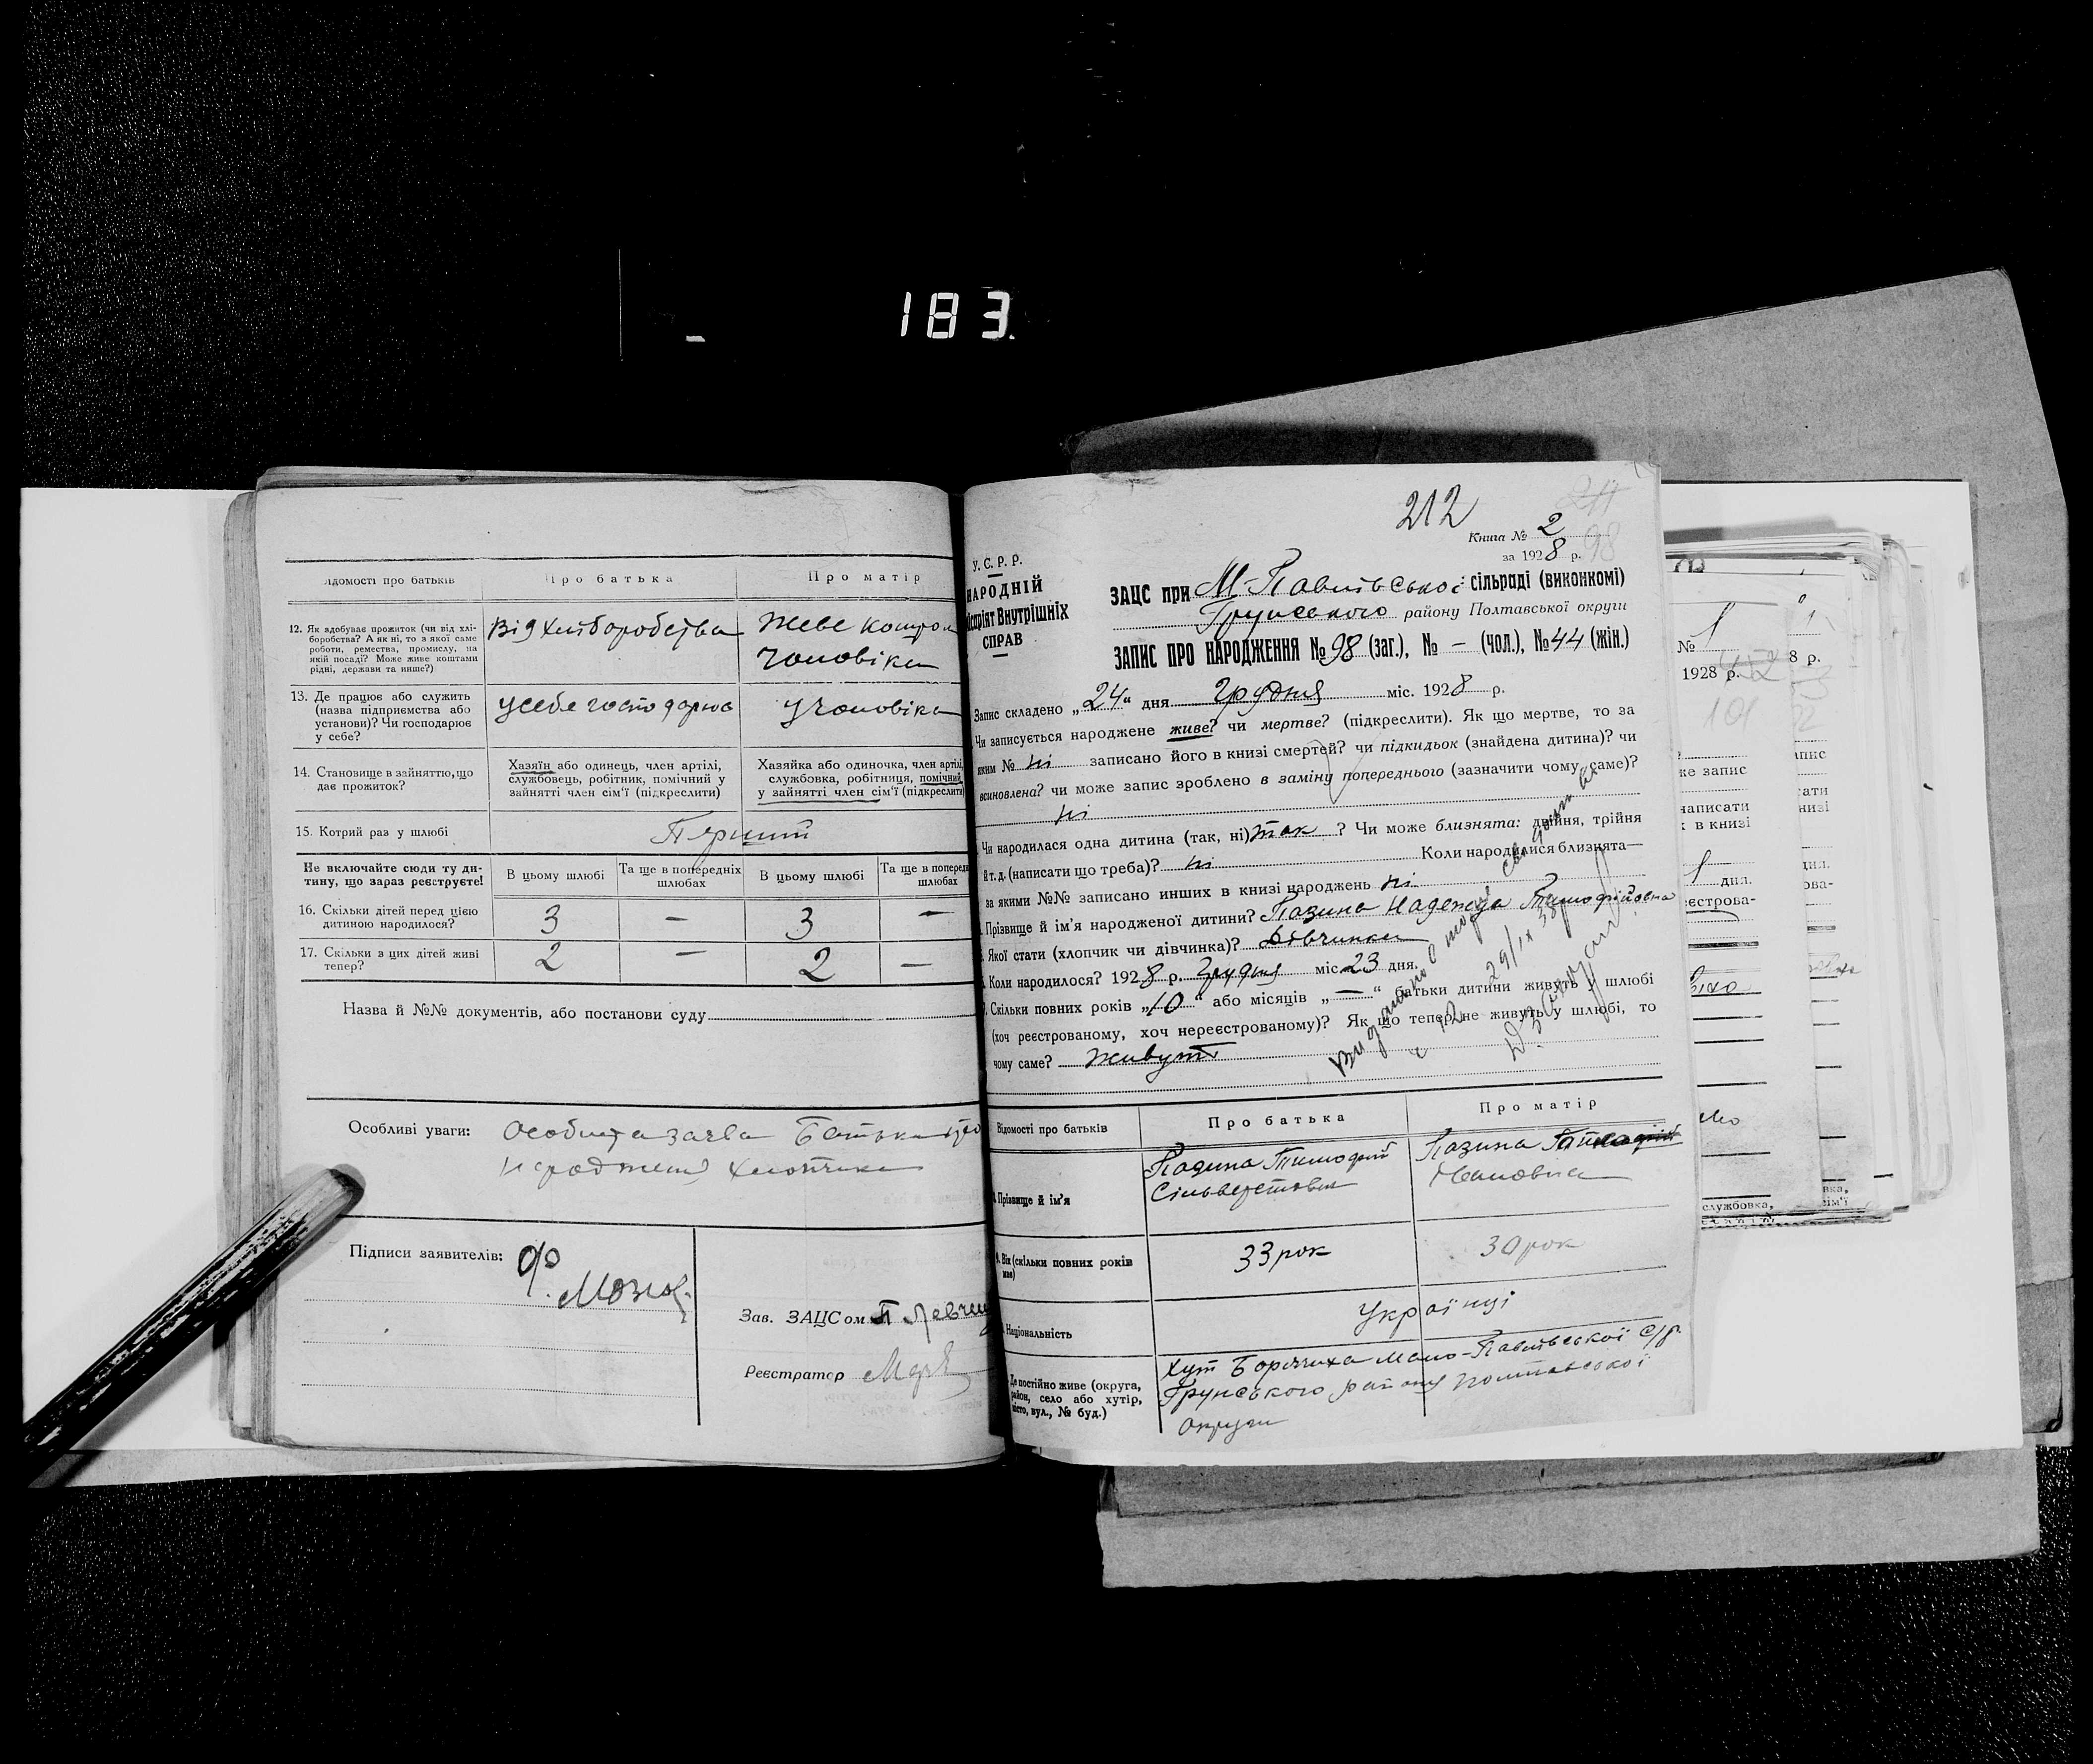 183.
Відомості про батьків
Про батька
Про матір
12. Як здобуває прожиток (чи від хлі-
боробства? А як ні, то з якої саме
роботи, ремества, промислу, на
якій посаді? Може живе коштами
рідні, держави та инше?)
Від хліборобства
Живе коштом
чоловіка
13. Де працює або служить
(назва підприємства або
установи)? Чи господарює
у себе?
у себе господарює
У чоловіка
14. Становище в зайняттю, що
дає прожиток?
Хазяїн або одинець, член артілі,
службовець, робітник, помічний у
зайнятті член сім'ї (підкреслити)
Хазяйка або одиночка, член артілі,
службовка, робітниця, помічний
у зайнятті член сім'ї (підкреслити)
15. Котрий раз у шлюбі
Перший
Не включайте сюди ту ди-
тину, що зараз реєструєте!
В цьому шлюбі
Та ще в попередніх
шлюбах
В цьому шлюбі
Та ще в поперед
шлюбах
16. Скільки дітей перед цією
дитиною народилося?
3 — 3 —
17. Скільки з цих дітей живі
тепер?
2 — 2 —
Назва й №№ документів, або постанови суду
Особливі уваги:
Особиста заява Батька про
народження хлопчика
Підписи заявителів:
Зав. ЗАЦСом
Реєстратор
212
Книга № 2
за 1928 р.
98
У. С. Р. Р.
НАРОДНІЙ
Комісаріят Внутрішніх
СПРАВ
ЗАЦС при М-Павлівської сільраді (виконкомі)
Грунського району Полтавської округи
ЗАПИС ПРО НАРОДЖЕННЯ № 98 (заг.), № — (чол.), № 44 (жін.)
Запис складено „24“ дня Грудня міс. 1928 р.
Чи записується народжене живе? чи мертве? (підкреслити). Як що мертве, то за
яким № ні записано його в книзі смертей? чи підкидьок (знайдена дитина)? чи
всиновлена? чи може запис зроблено в заміну попереднього (зазначити чому саме)?
ні
Чи народилася одна дитина (так, ні) так ? Чи може близнята: двійня, трійня
й т. д. (написати що треба)? ні Коли народилися близнята—
за якими №№ записано инших в книзі народжень ні
Прізвище й ім'я народженої дитини? Лазина Надежда Тимофійовна
Якої стати (хлопчик чи дівчинка)? Дівчинка
Коли народилося? 1928 р. Грудня міс. 23 дня.
Скільки повних років „10“ або місяців „—“ батьки дитини живуть у шлюбі
(хоч реєстрованому, хоч нереєстрованому)? Як що тепер не живуть у шлюбі, то
чому саме? живуть
29/IX 38
Відомості про батьків
Про батька
Про матір
Прізвище й ім'я
Лазина Тимофій
Сільверстович
Лазина
Ивановна
9. Вік (скільки повних років
має)
33 рок
30 рок
Національність
Українці
Де постійно живе (округа,
район, село або хутір,
місто, вул., № буд.)
Хут Мало-Павлівської с/р.
Грунського району Полтавської
округи
№ 1
1928 р.
101
8 р.